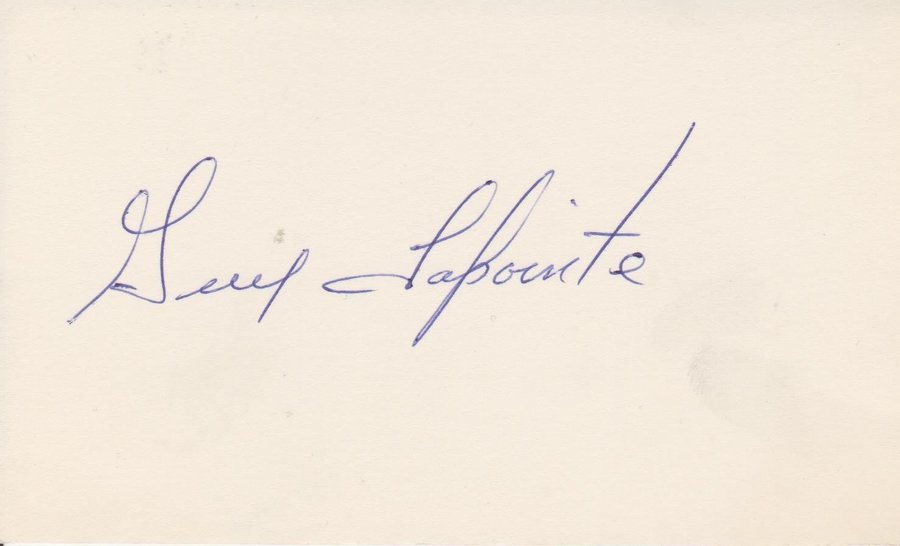 Guy Lapointe